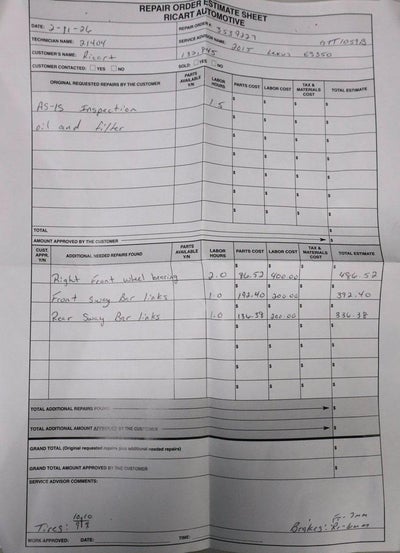 REPAIR ORDER ESTIMATE SHEET
RICART AUTOMOTIVE
DATE: 2-11-26 REPAIR ORDER #:
TECHNICIAN NAME: 21404 SERVICE ADVISOR NAME: 2015 Lexus ES350
CUSTOMER'S NAME: Ricart 132,945
CUSTOMER CONTACTED: YES NO SOLD: YES NO
ORIGINAL REQUESTED REPAIRS BY THE CUSTOMER PARTS AVAILABLE Y/N LABOR HOURS PARTS COST LABOR COST TAX & MATERIALS COST TOTAL ESTIMATE
AS-IS Inspection 1.5
oil and filter
TOTAL
AMOUNT APPROVED BY THE CUSTOMER
CUST. APPR. Y/N ADDITIONAL NEEDED REPAIRS FOUND PARTS AVAILABLE Y/N LABOR HOURS PARTS COST LABOR COST TAX & MATERIALS COST TOTAL ESTIMATE
Right Front wheel bearing 2.0 $ 86.52 $ 400.00 $ $ 486.52
Front Sway Bar links 1.0 $ 192.40 $ 200.00 $ $ 392.40
Rear Sway Bar links 1.0 $ 136.38 $ 200.00 $ $ 336.38
TOTAL ADDITIONAL REPAIRS FOUND $
TOTAL ADDITIONAL AMOUNT APPROVED BY THE CUSTOMER $
GRAND TOTAL (Original requested repairs plus additional needed repairs) $
GRAND TOTAL AMOUNT APPROVED BY THE CUSTOMER $
SERVICE ADVISOR COMMENTS:
10 10 F-7mm
Tires: Brakes: R-6mm
WORK APPROVED: DATE: TIME: